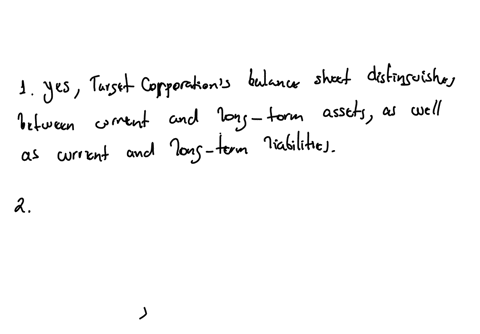 1. yes, Target Corporation's balance sheet distinguishes
between current and long-term assets, as well
as current and long-term liabilities.
2.